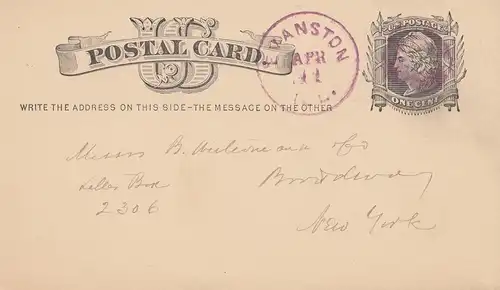 US
POSTAL CARD.
EVANSTON
APR
11
ILL.
U.S. POSTAGE
ONE CENT
WRITE THE ADDRESS ON THIS SIDE-THE MESSAGE ON THE OTHER
Messrs B. & Co
Letter Box
2306
Broadway
New York